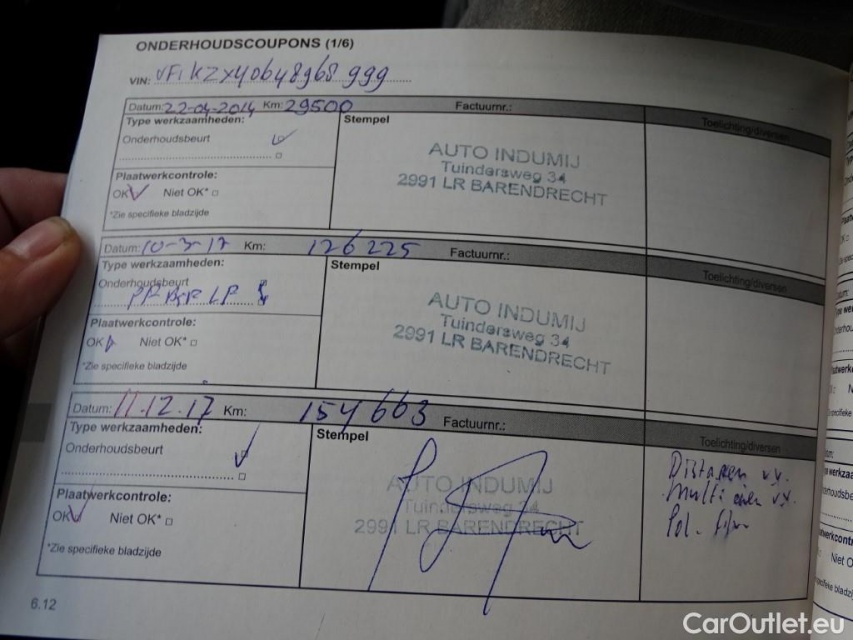 ONDERHOUDSCOUPONS (1/6)
VIN: VF1KZX40648968999
Datum: 22-04-2014 Km: 29500 Factuurnr.: Toelichting/diversen
Type werkzaamheden: Stempel
Onderhoudsbeurt
AUTO INDUMIJ
Tuindersweg 34
2991 LR BARENDRECHT
Plaatwerkcontrole:
OK Niet OK*
*Zie specifieke bladzijde
Datum: 10-3-17 Km: 126225 Factuurnr.: Toelichting/diversen
Type werkzaamheden: Stempel
Onderhoudsbeurt
AUTO INDUMIJ
Tuindersweg 34
2991 LR BARENDRECHT
Plaatwerkcontrole:
OK Niet OK*
*Zie specifieke bladzijde
Datum: 11.12.17 Km: 154663 Factuurnr.: Toelichting/diversen
Type werkzaamheden: Stempel
Onderhoudsbeurt
AUTO INDUMIJ
Tuindersweg 34
2991 LR BARENDRECHT
Plaatwerkcontrole:
OK Niet OK*
*Zie specifieke bladzijde
6.12
CarOutlet.eu